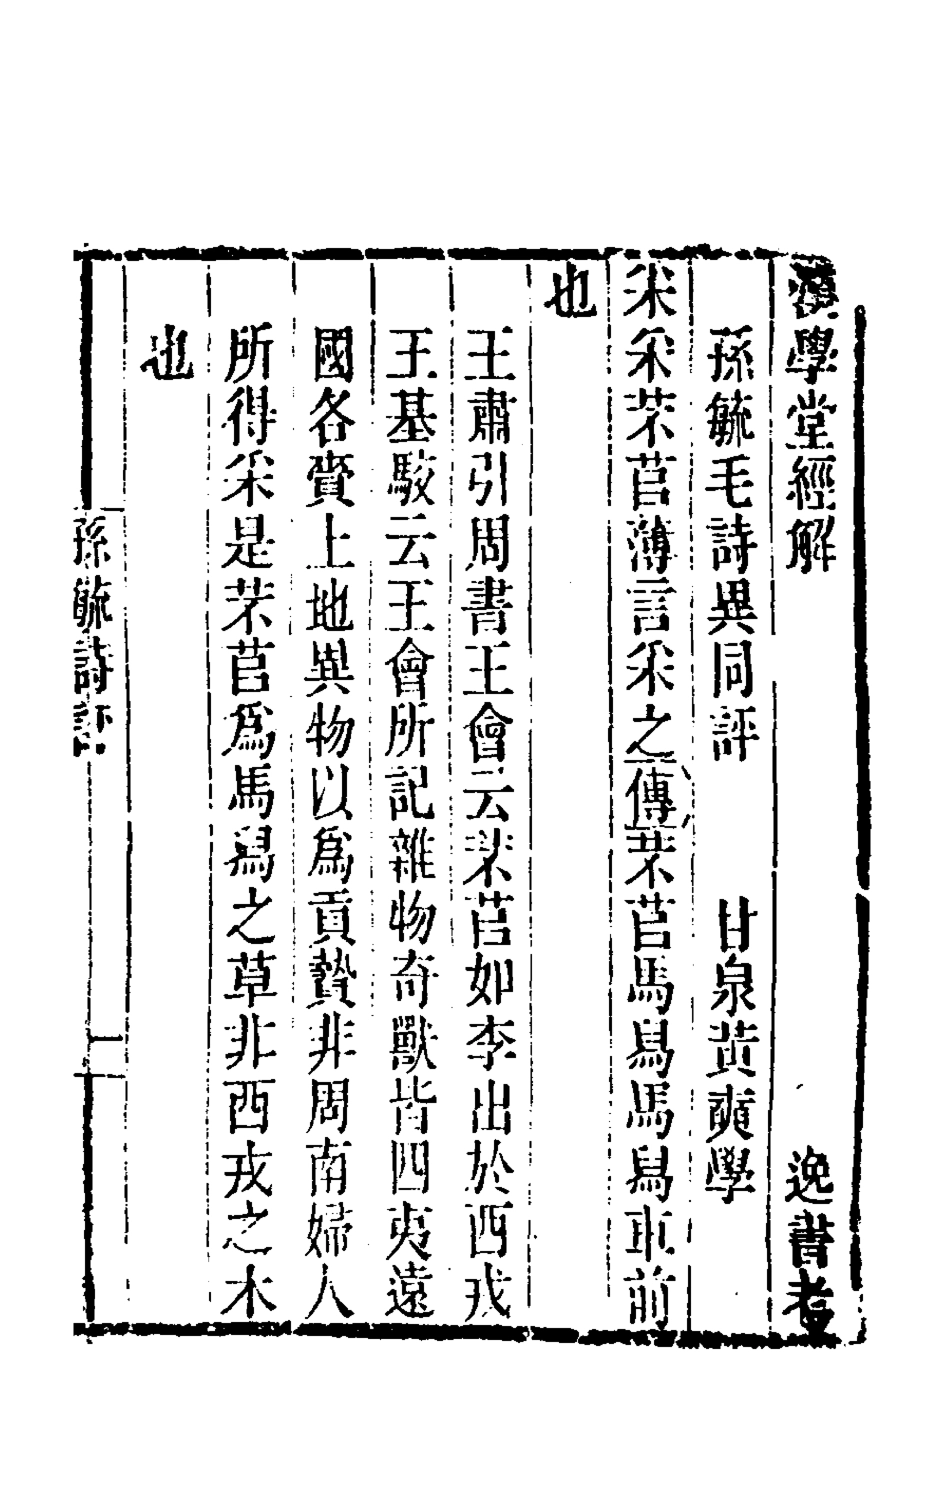 漢學堂經解　逸書考
孫毓毛詩異同評　甘泉黃奭學
采采芣苢薄言采之傳芣苢馬舄馬舄車前
也
王肅引周書王會云芣苢如李出於西戎
王基駁云王會所記雜物奇獸皆四夷遠
國各賷土地異物以爲貢贄非周南婦人
所得采是芣苢爲馬舄之草非西戎之木
也
孫毓詩評　一